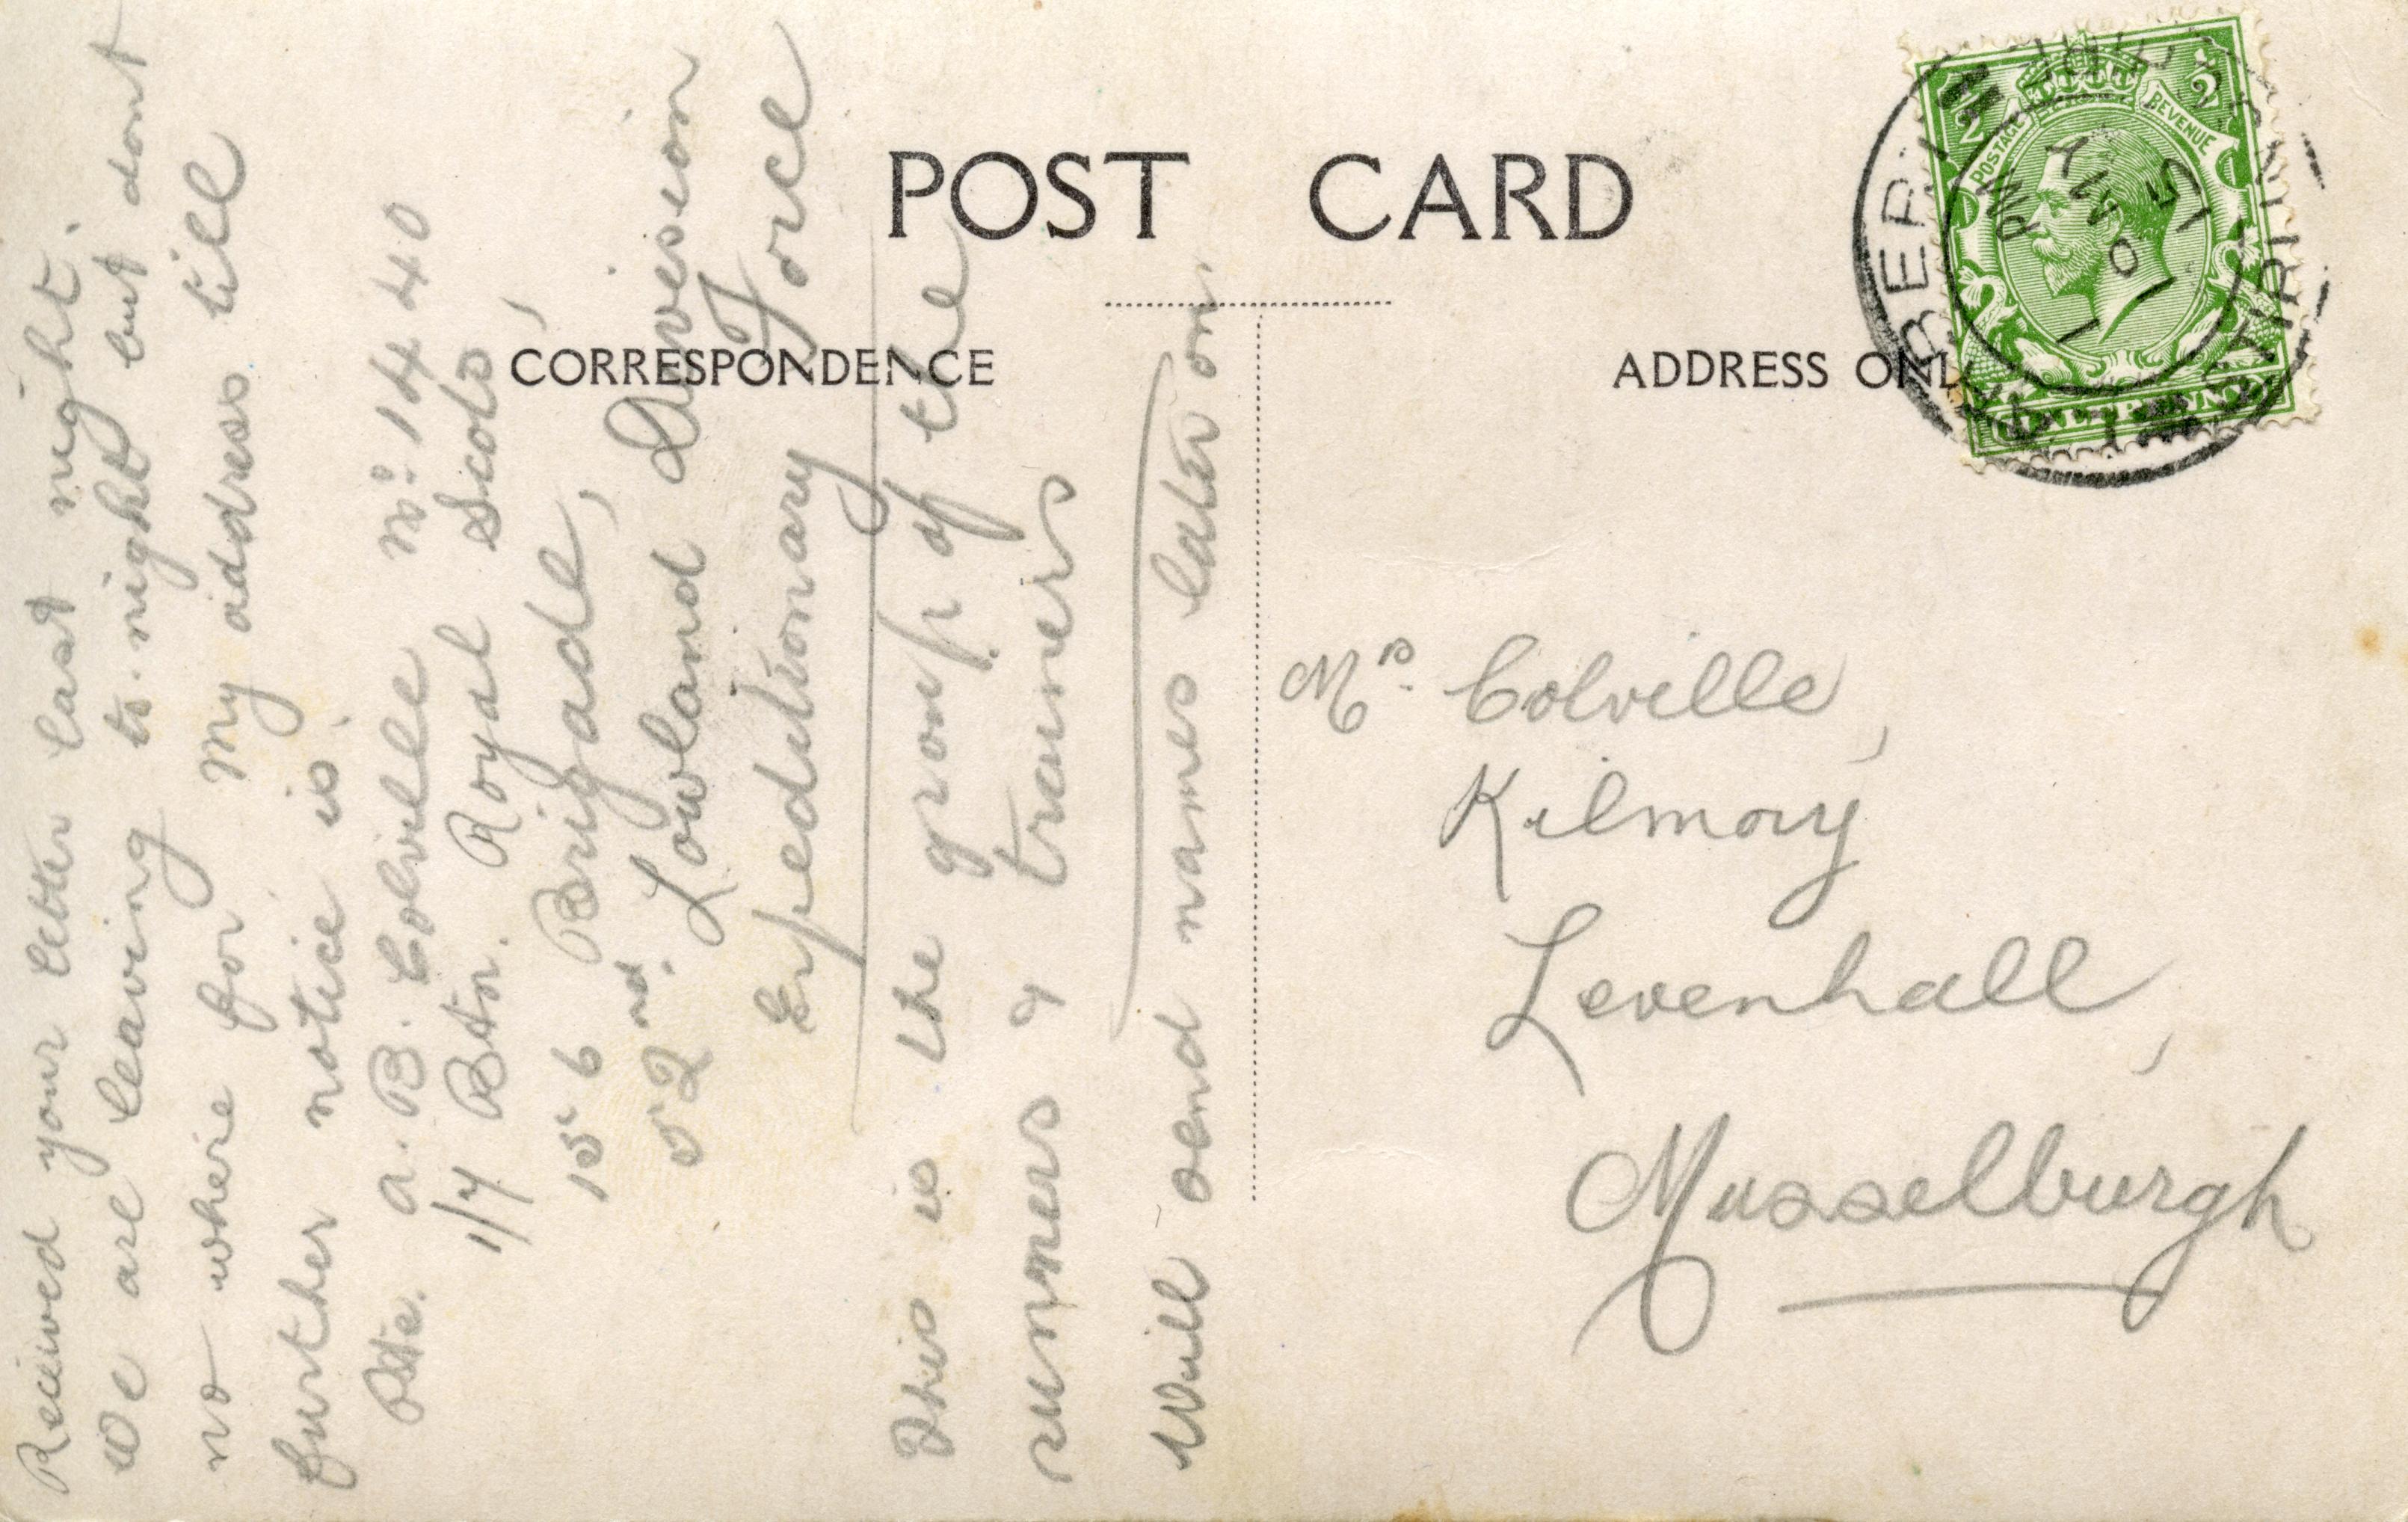 POST CARD
CORRESPONDENCE
ADDRESS ONL
Received your letter last night.
we are leaving to.night but dont
no where for My address till
further notice is.
Pte. A. B. Colville No. 1440
1/7 Btn. Royal Scots,
156 Brigade,
52nd. Lowland Division
Expeditionary Force
This is the group of the
runners & trainers
Will send names later on.
Mrs. Colville,
Kilmory
Levenhall,
Musselburgh
POSTAGE
REVENUE
HALFPENNY
PM
MY
15